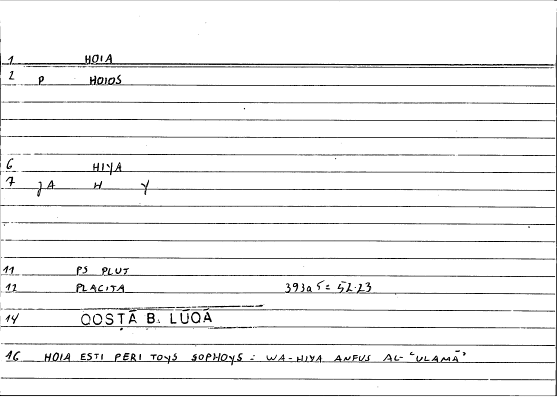 1 HOIA
2 P HOIOS
6 HIYA
7 JA H Y
11 PS PLUT
12 PLACITA 393a5 = 52.23
14 QOSṬĀ B. LŪQĀ
16 HOIA ESTI PERI TOYS SOPHOYS = WA-HIYA ANFUS AL-ʿULAMĀʾ